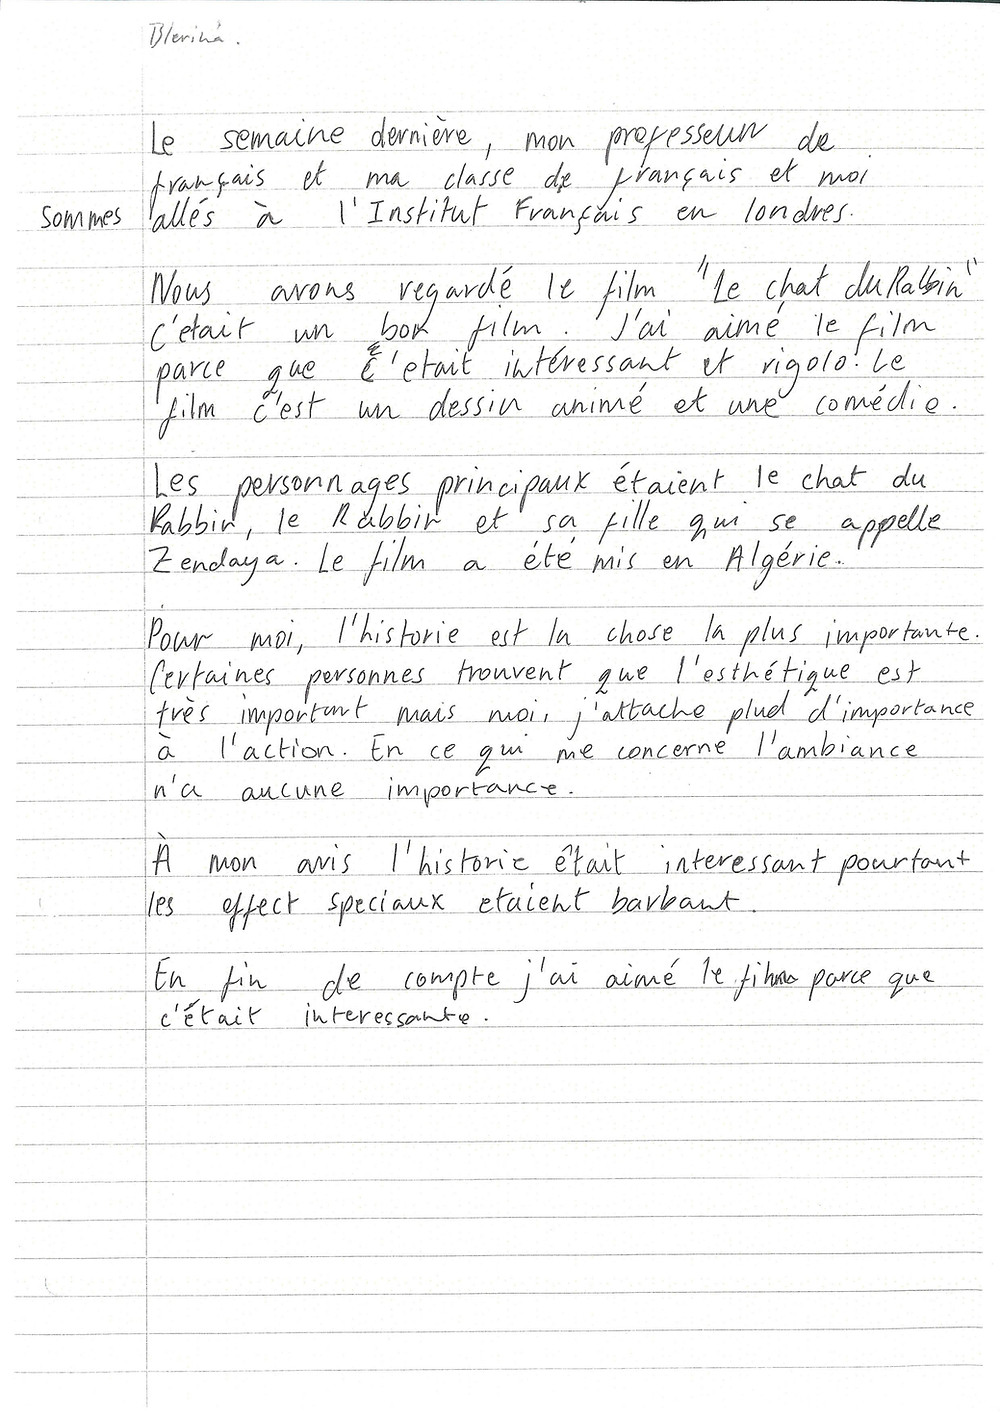 Blerina.
Le semaine dernière, mon professeur de
français et ma classe de français et moi
sommes allés à l'Institut Français en londres.
Nous avons regardé le film "Le chat du Rabbin"
C'était un bon film. J'ai aimé le film
parce que c'etait intéressant et rigolo. Le
film c'est un dessin animé et une comédie.
Les personnages principaux étaient le chat du
Rabbin, le Rabbin et sa fille qui se appelle
Zendaya. Le film a été mis en Algérie.
Pour moi, l'historie est la chose la plus importante.
Certaines personnes trouvent que l'esthétique est
très important mais moi, j'attache plud d'importance
à l'action. En ce qui me concerne l'ambiance
n'a aucune importance.
À mon avis l'historie était interessant pourtant
les effect speciaux etaient barbant.
En fin de compte j'ai aimé le film parce que
c'était interessante.